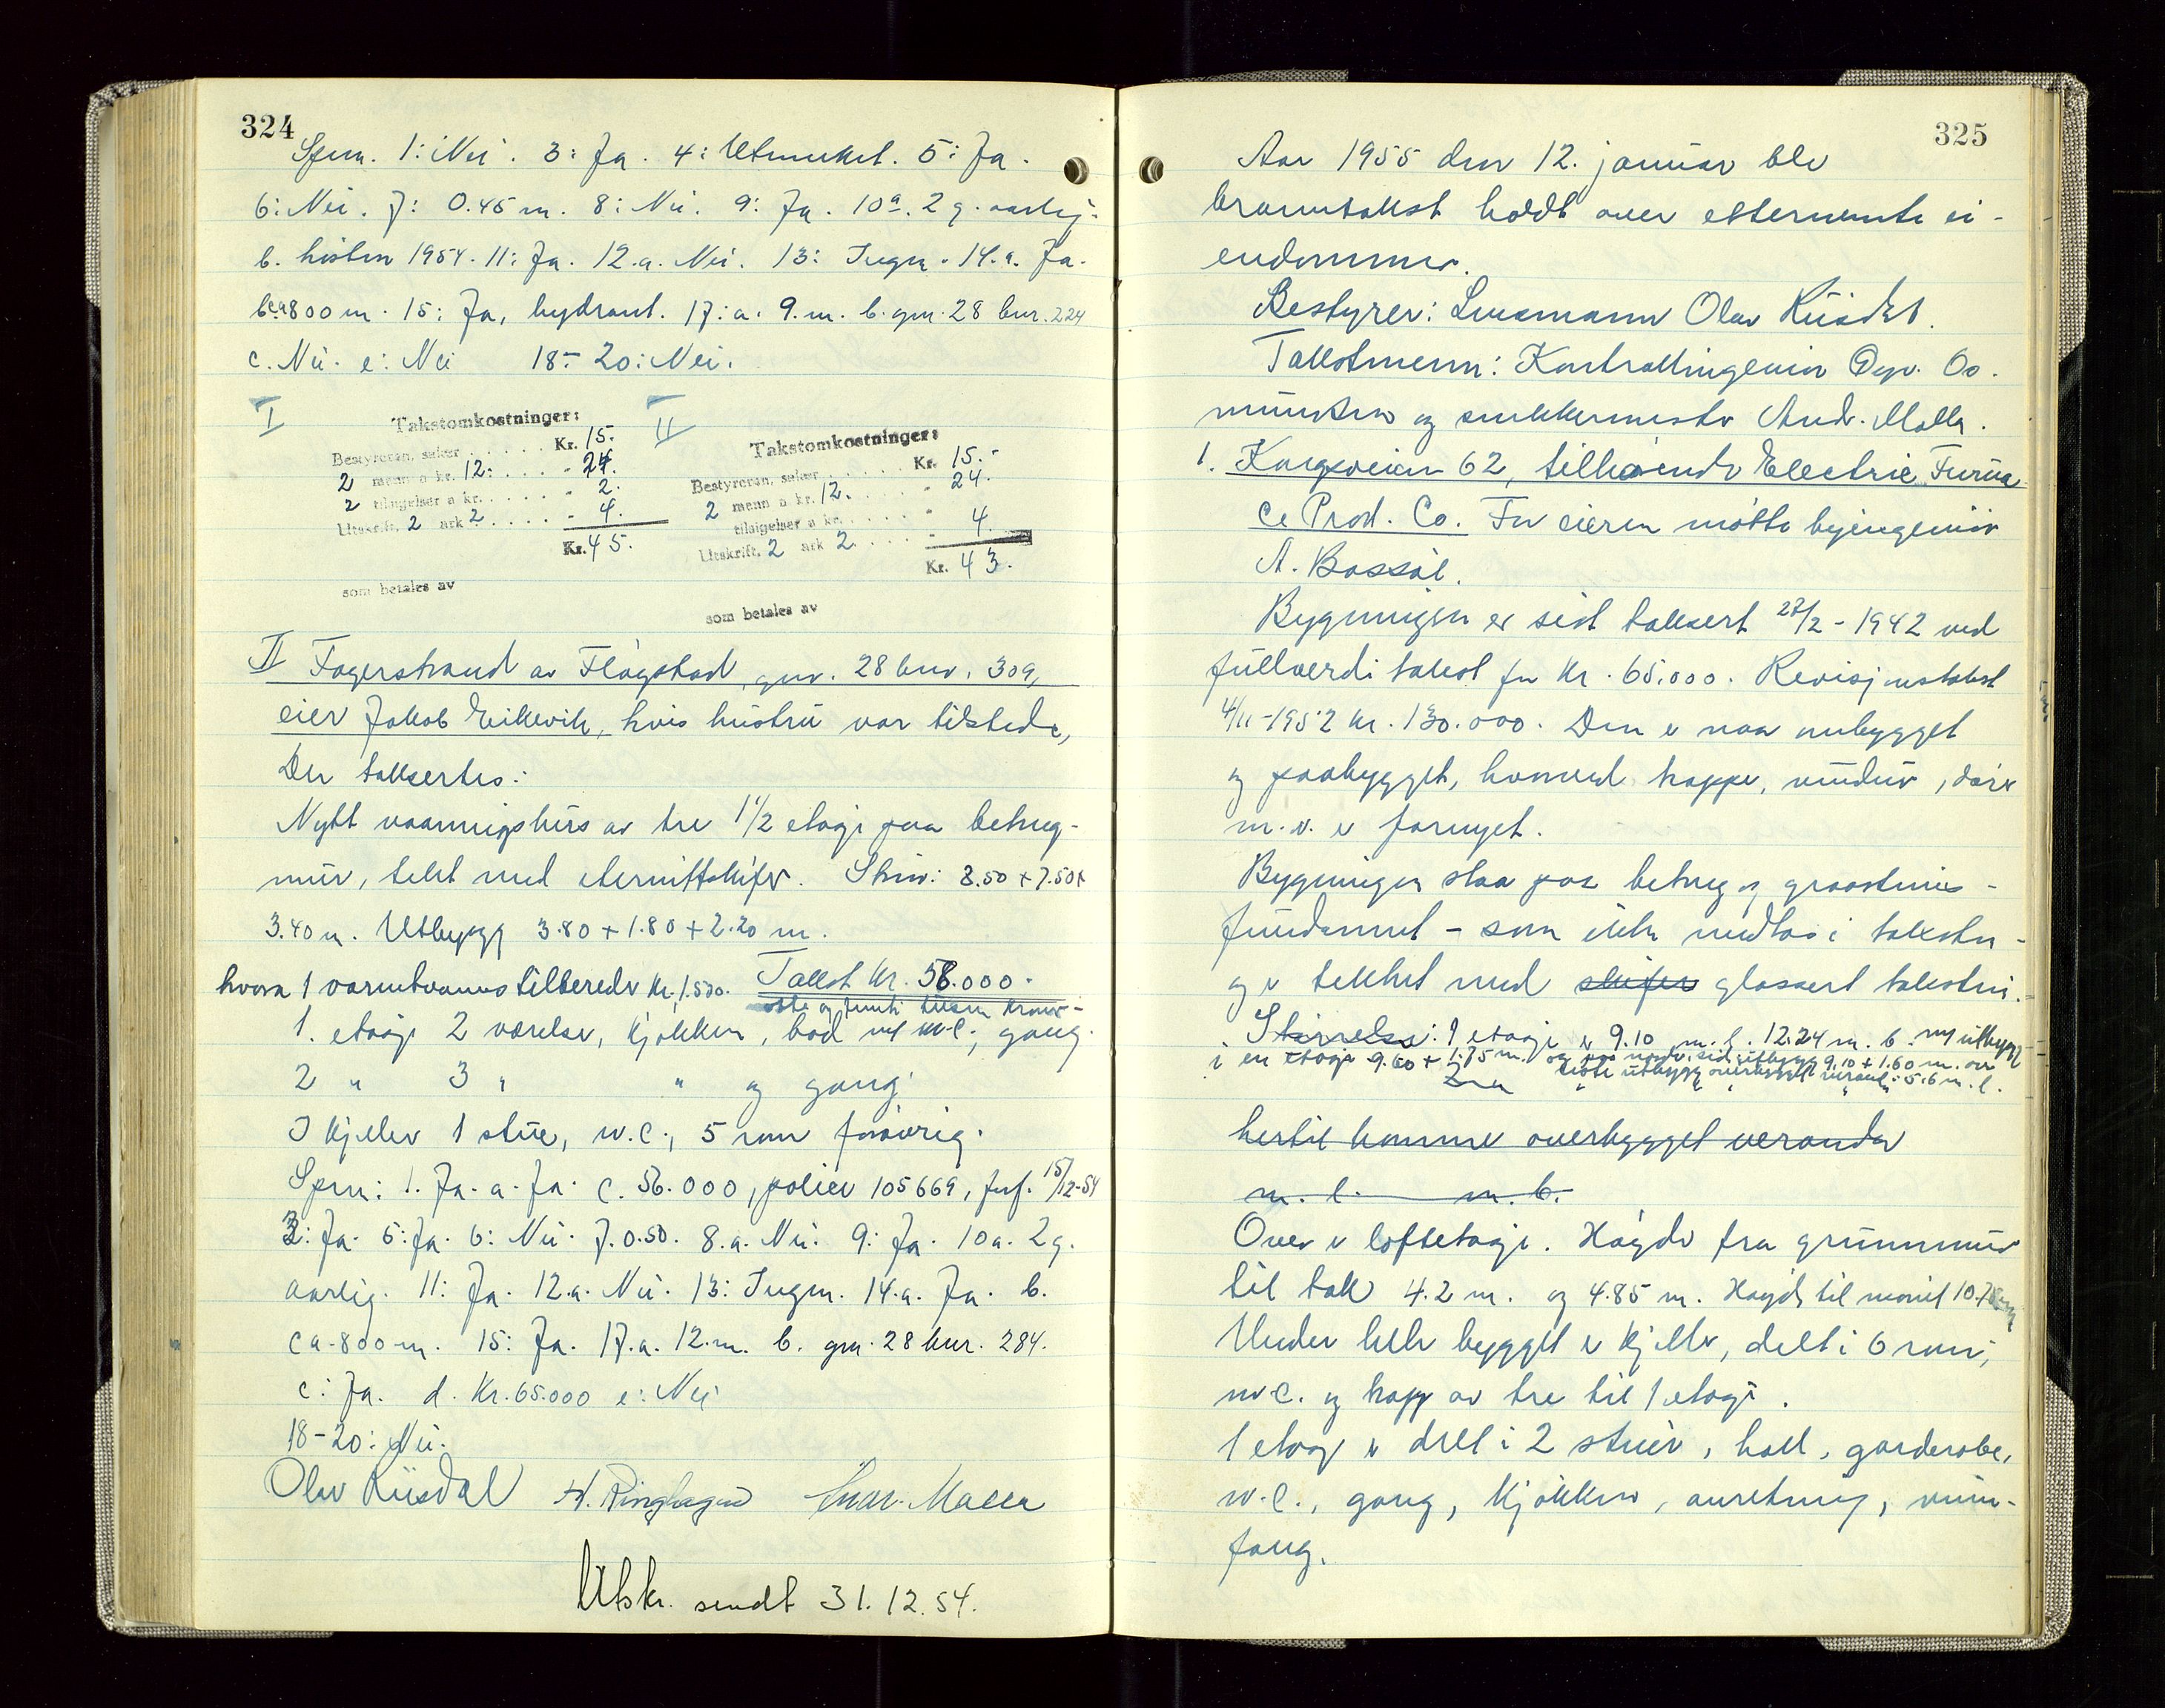 324
Spm. 1: Nei. 3: Ja. 4: Utmerket. 5: Ja.
6: Nei. 7: 0.45 m. 8: Nei. 9: Ja. 10a. 2 g. aarlig.
b. høsten 1954. 11: Ja. 12.a. Nei. 13: Ingen. 14.a. Ja.
b ca 800 m. 15: Ja, hydrant. 17: a. 9. m. b. gnr. 28 bnr. 224
c. Nei. e: Nei 18 - 20: Nei.
I Takstomkostninger:
Bestyreren, salær . . . . . Kr. 15.
2 menn a kr. 12: . . . . - 24.
2 tilsigelser a kr. . . . . - 2.
Utskrift, 2 ark 2 . . . . - 4.
Kr. 45.
som betales av
II Takstomkostninger:
Bestyreren, salær . . . . . Kr. 15.-
2 menn a kr. 12. . . . . - 24.
tilsigelser a kr. . . . . -
Utskrift, 2 ark 2. . . . . - 4.
Kr. 43.
som betales av
II Fagerstrand av Flågstad, gnr. 28 bnr. 309,
eier Jakob Eikevik, hvis hustru var tilstede,
Der taksertes:
Nytt vaaningshus av tre 1 1/2 etage paa betong-
mur, tekt med eternittskifer. Størr: 8.50 + 7.50 +
3.40 m. Utbygg 3.80 + 1.80 + 2.20 m.
hvorav 1 varmtvannstilbereder Kr. 1.500. Takst Kr. 58.000.-
otte og femti tusen kroner-
1. etasje 2 værelser, kjøkken, bad med w.c., gang.
2 " 3 " " og gang.
I kjeller 1 stue, w.c., 5 rom forøvrig.
Spm: 1. Ja. a. Ja. c. 56.000, police 105669, forf. 15/12-54
3: Ja. 5: Ja. 6: Nei. 7. 0.50. 8.a. Nei. 9: Ja. 10a. 2 g.
aarlig. 11: Ja. 12.a. Nei. 13: Ingen. 14.a. Ja. b.
ca. 800 m. 15: Ja. 17.a. 12. m. b. gnr. 28 bnr. 284.
c: Ja. d. Kr. 65.000 e: Nei
18-20: Nei.
Olav Riisdal
Utskr. sendt 31.12.54.
325
Aar 1955 den 12. januar ble
branntakst holdt over etternevnte ei-
endommer.
Bestyrer: Lensmann Olav Riisdal.
Takstmenn: Kontrollingeniør Os-
munsen og snekkermester Andr. Malla.
1. Kongsveien 62, tilhørende Electric Furna
ce Prod. Co. For eieren møtte byingeniør
A. Bassøe.
Bygningen er sist taksert 27/2 - 1942 ved
fullverdi takst for Kr. 65.000. Revisjonstakst
4/11-1952 kr. 130.000. Den er naa ombygget
og paabygget, hvorved trapper, vinduer, dører
m.v. er fornyet.
Bygningen staar paa betong og graastens-
fundament - som ikke medtas i taksten -
og er tekket med skifer glassert taksten.
Størrelse: 1 etasje er 9.10 m. l. 12.24 m. b. med utbygg
i en etasje 9.60 + 1.75 m. og paa nordv. side utbygg 9.10 + 1.60 m. over
siste utbygg overbygget veranda 5.6 m. l.
hertil kommer overbygget veranda
m. l. m. b.
Over er loftsetasje. Høyde fra grunnmur
til tak 4.2 m. og 4.85 m. Høyde til mønet 10.75 m
Under hele bygget er kjeller, delt i 6 rom,
w.c. og trapp av tre til 1 etasje.
1 etasje er delt i 2 stuer, hall, garderobe,
w.c., gang, kjøkken, anretning, vinn-
fang.